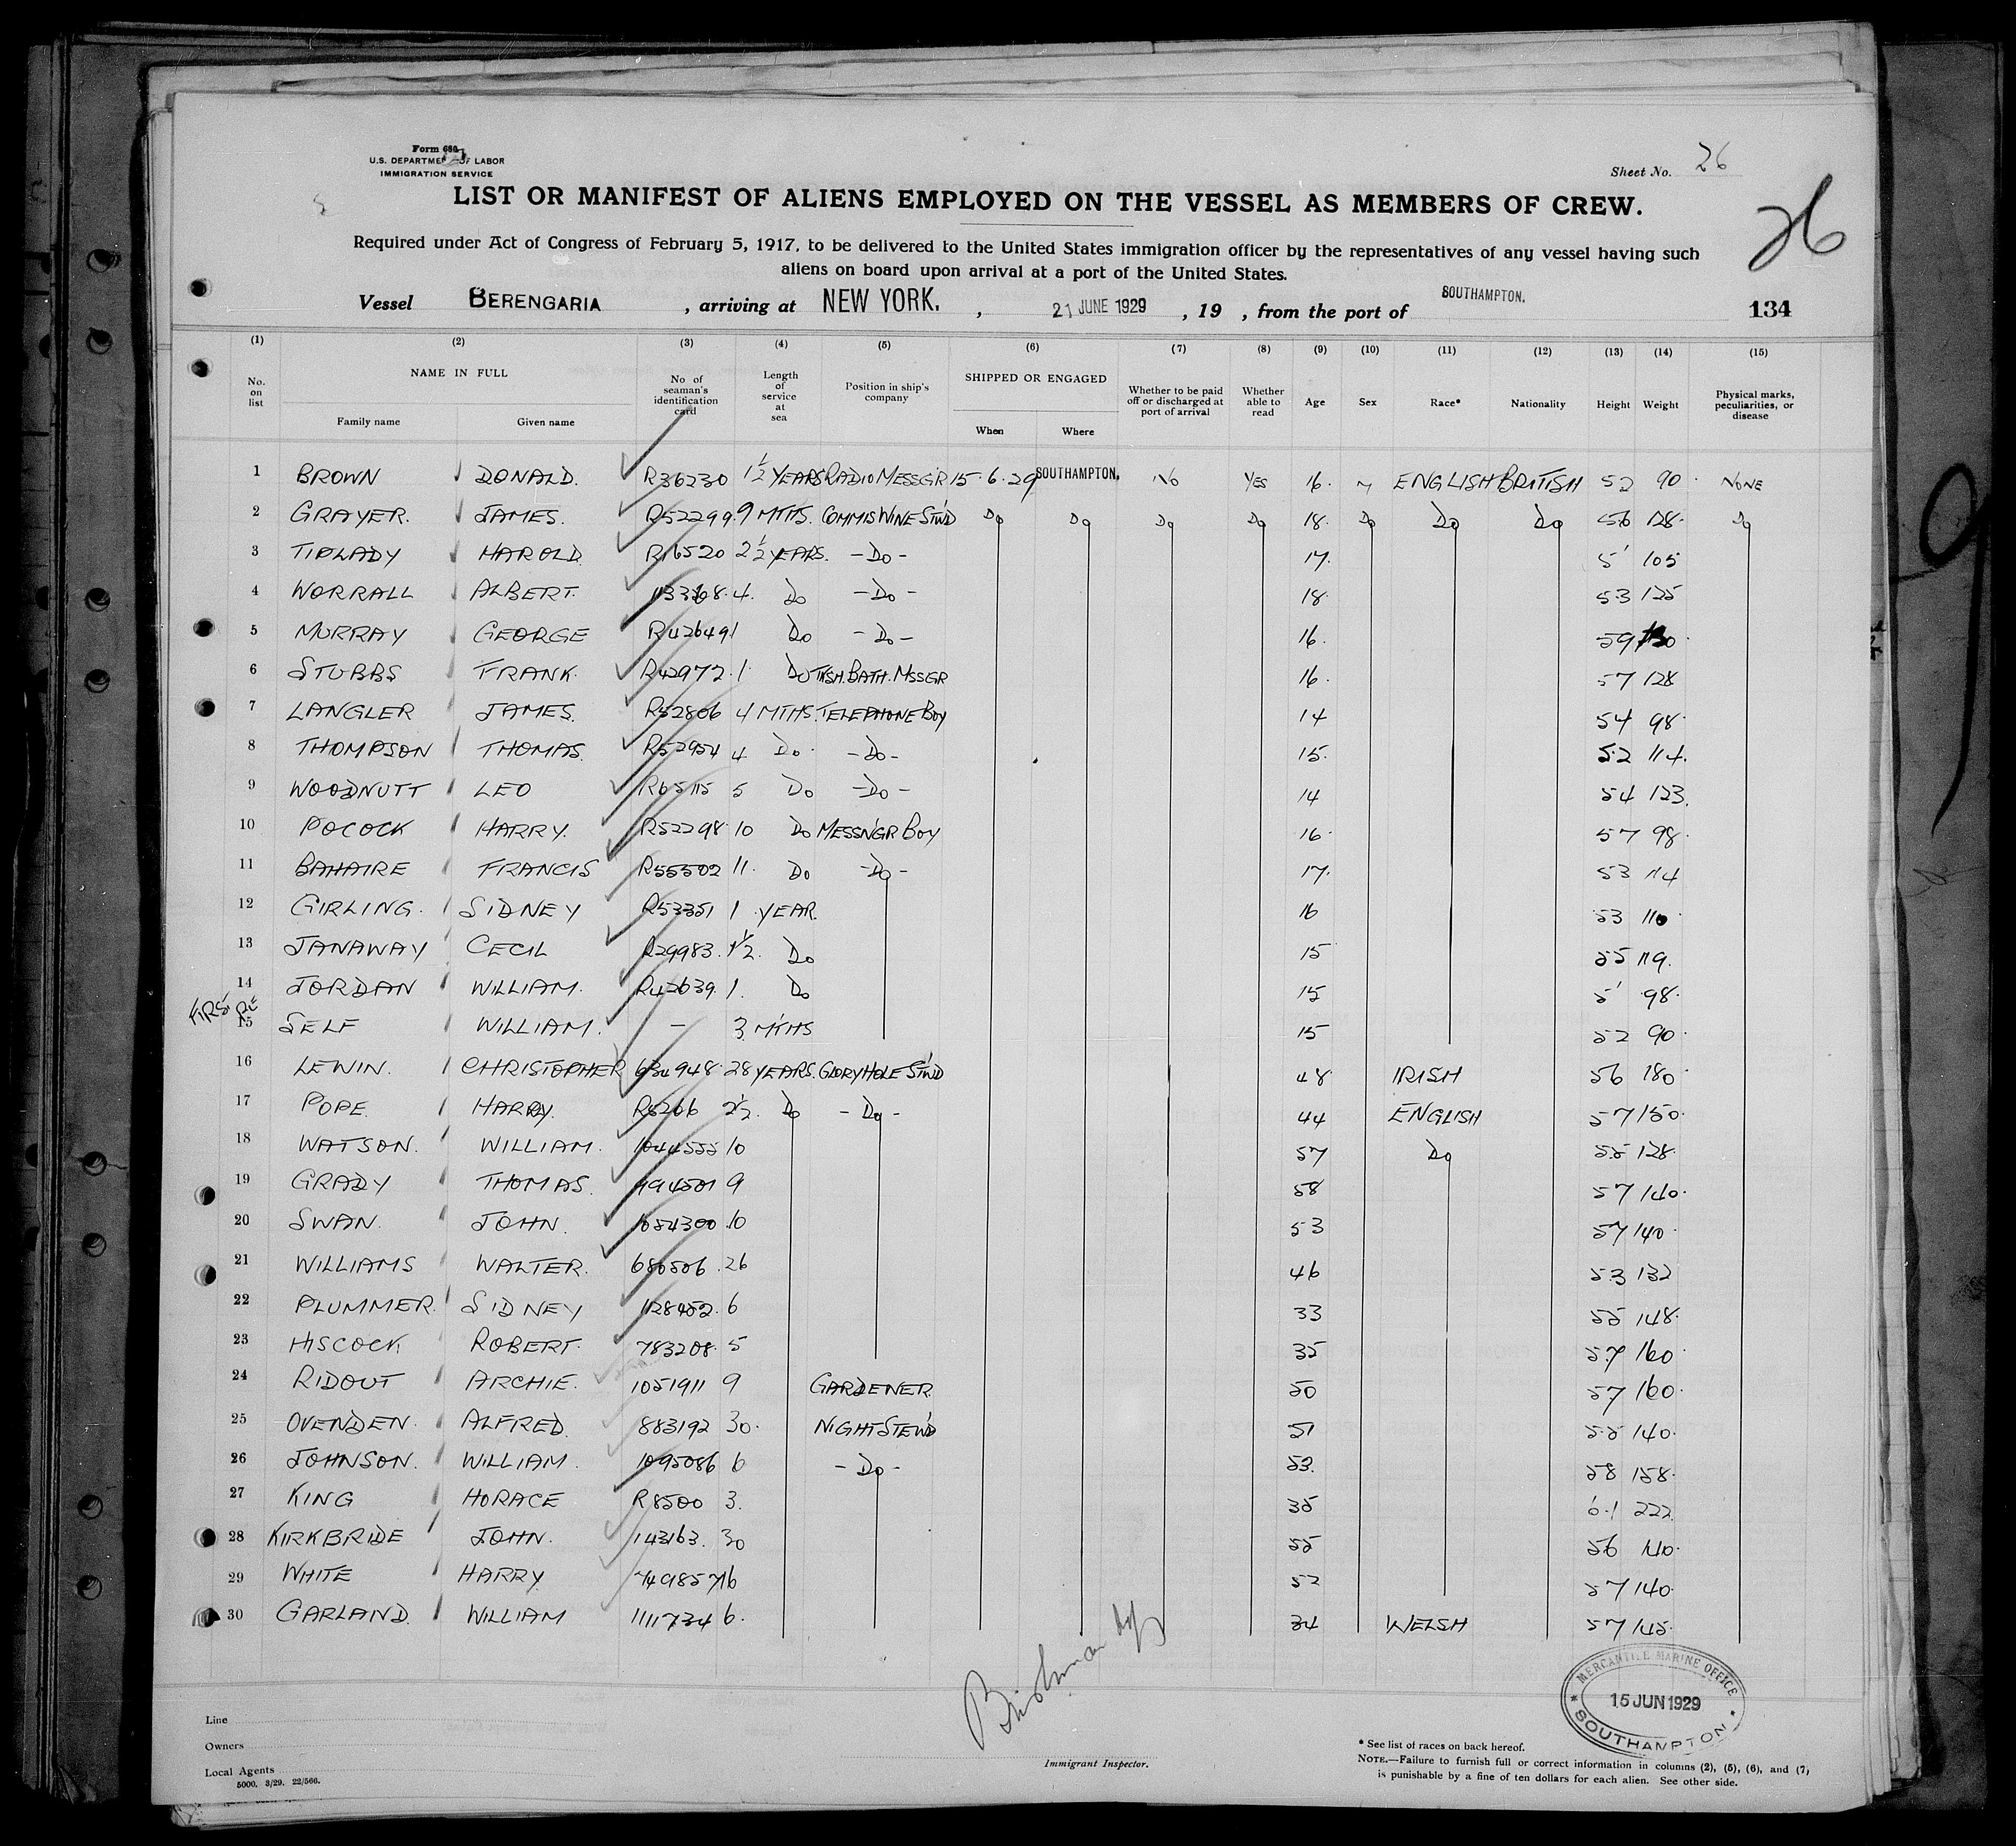 Form 680
U.S. DEPARTMENT OF LABOR
IMMIGRATION SERVICE
Sheet No. 26
LIST OR MANIFEST OF ALIENS EMPLOYED ON THE VESSEL AS MEMBERS OF CREW.
26
Required under Act of Congress of February 5, 1917, to be delivered to the United States immigration officer by the representatives of any vessel having such
aliens on board upon arrival at a port of the United States.
Vessel BERENGARIA , arriving at NEW YORK. , 21 JUNE 1929 , 19 , from the port of SOUTHAMPTON. 134
(1) (2) (3) (4) (5) (6) (7) (8) (9) (10) (11) (12) (13) (14) (15)
No. on list NAME IN FULL Family name Given name No of seaman's identification card Length of service at sea Position in ship's company SHIPPED OR ENGAGED When Where Whether to be paid off or discharged at port of arrival Whether able to read Age Sex Race* Nationality Height Weight Physical marks, peculiarities, or disease
1 BROWN DONALD. R36230 1½ YEARS RADIO MESSGR 15.6.29 SOUTHAMPTON. NO YES 16. M ENGLISH BRITISH 52 90. NONE
2 GRAYER. JAMES. R52299. 9 MTHS. COMMIS WINE STWD Do Do Do Do 18. Do Do Do 56 128. Do
3 TIPLADY HAROLD. R16520 2½ YEARS. -Do- 17. 5' 105
4 WORRALL ALBERT. 4. Do -Do- 18. 53 125
5 MURRAY GEORGE R42649 1 Do -Do- 16. 59
6 STUBBS FRANK. R42972. 1. Do TKSH. BATH. MSSGR 16. 57 128
7 LANGLER JAMES. R52806 4 MTHS. TELEPHONE BOY 14 54 98.
8 THOMPSON THOMAS. R52954 4 Do. -Do- 15. 5.2 114.
9 WOODNUTT LEO R65115 5 Do -Do- 14 54 123.
10 POCOCK HARRY. R52298. 10 Do MESSN'GR BOY 16. 57 98.
11 BAHAIRE FRANCIS R55502 11. Do -Do- 17. 53 114
12 GIRLING. SIDNEY R53351 1 YEAR. 16 53 110.
13 JANAWAY CECIL R29983. 1½. Do 15 55 119.
14 JORDAN WILLIAM. R42639. 1. Do 15 5' 98.
15 SELF WILLIAM. - 3 MTHS 15 52 90.
16 LEWIN. CHRISTOPHER 634948. 28 YEARS. GLORY HOLE STWD 48 IRISH 56 180.
17 POPE. HARRY. R5206 2½. Do -Do- 44 ENGLISH 57 150.
18 WATSON. WILLIAM. 1044555 10 57 Do 5.5 128.
19 GRADY THOMAS. 994501 9 58 57 140.
20 SWAN. JOHN. 1054300 10 53 57 140.
21 WILLIAMS WALTER. 680506. 26 46 53 132
22 PLUMMER. SIDNEY 1128452. 6 33 55 148.
23 HISCOCK ROBERT. 783208. 5 35 5.7 160.
24 RIDOUT ARCHIE. 1051911 9 GARDENER. 50 57 160.
25 OVENDEN. ALFRED. 883192 30. NIGHT STEWD 51 5.5 140.
26 JOHNSON. WILLIAM. 1095086 6 -Do- 53. 58 158.
27 KING HORACE R8500 3. 35 6.1 222
28 KIRKBRIDE JOHN. 143163. 30 55 56 140.
29 WHITE HARRY 749857 16 52 57 140.
30 GARLAND. WILLIAM 1111734 6. 34 WELSH 57 145.
MERCANTILE MARINE OFFICE
15 JUN 1929
SOUTHAMPTON
Line
Owners
Local Agents
5000. 3/29. 22/566.
Immigrant Inspector.
* See list of races on back hereof.
NOTE.—Failure to furnish full or correct information in columns (2), (5), (6), and (7)
is punishable by a fine of ten dollars for each alien. See other side.